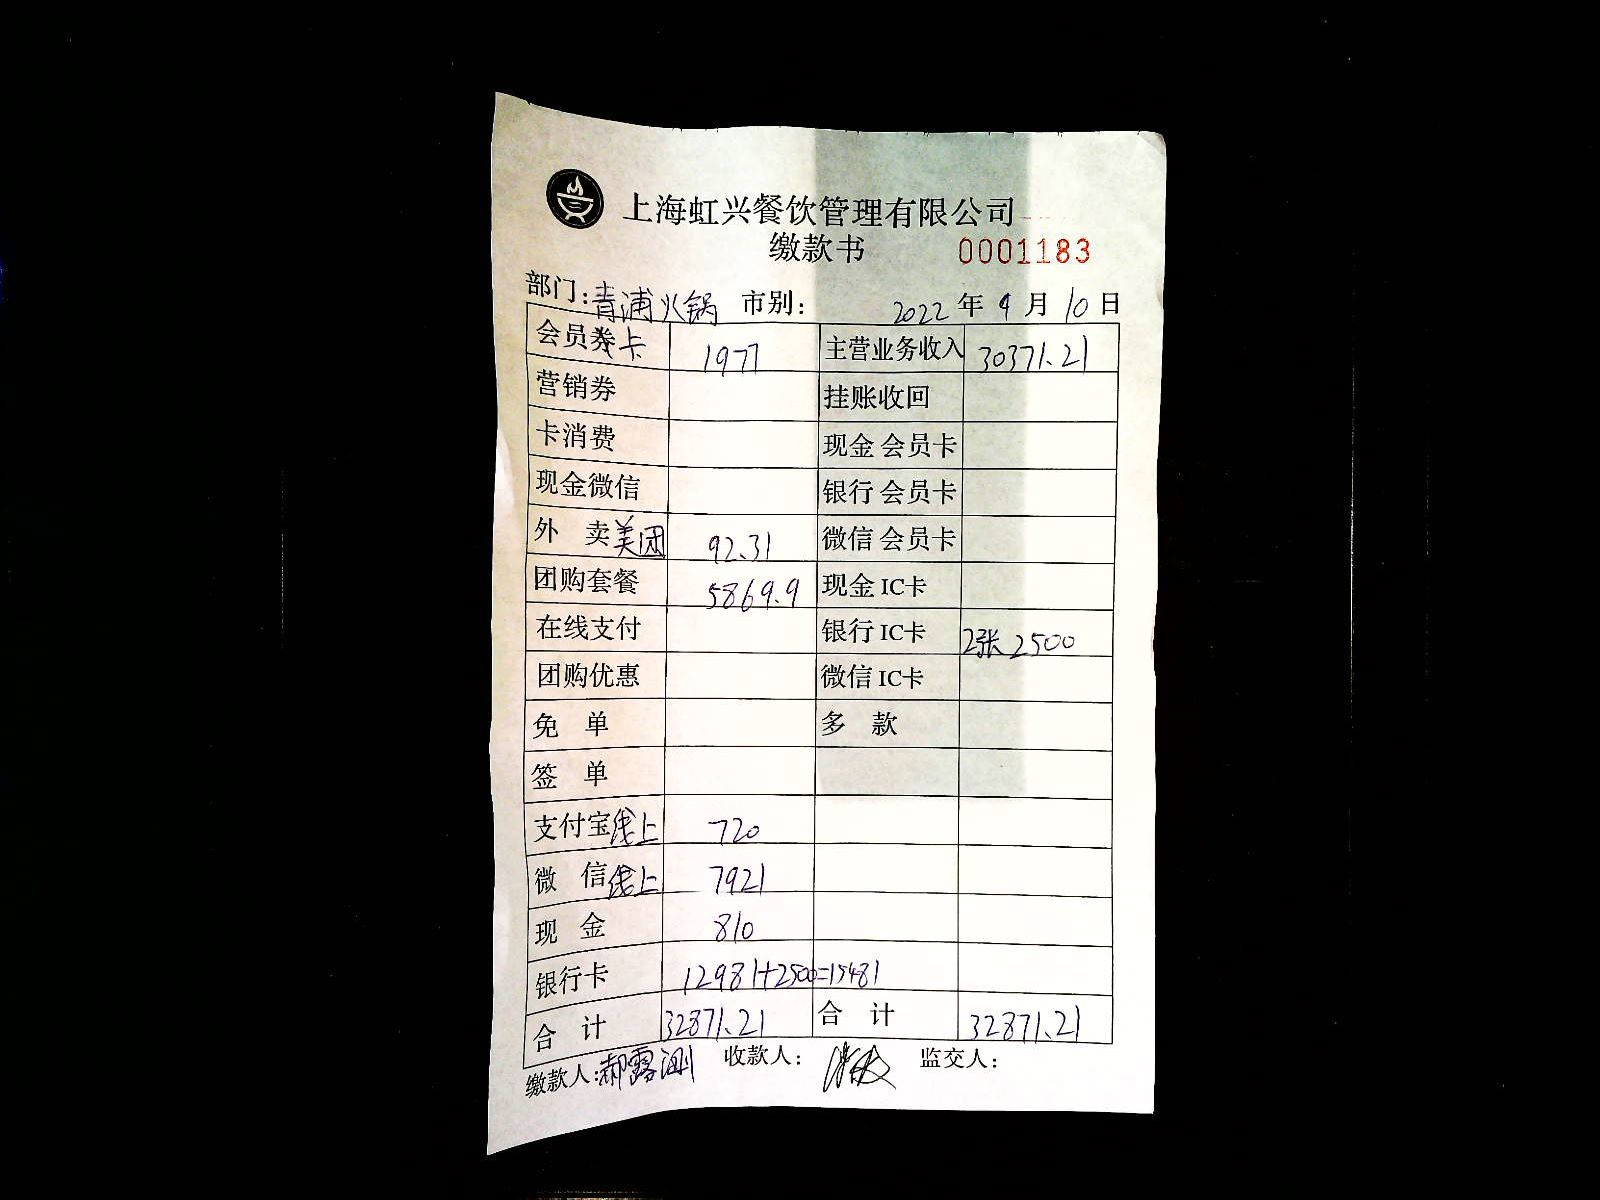 上海虹兴餐饮管理有限公司
缴款书 0001183
部门:青浦火锅 市别: 2022 年 9 月 10 日
会员券卡 1977 主营业务收入 30371.21
营销券 挂账收回
卡消费 现金 会员卡
现金微信 银行 会员卡
外 卖美团 92.31 微信 会员卡
团购套餐 5869.9 现金 IC卡
在线支付 银行 IC卡 2张 2500
团购优惠 微信 IC卡
免 单 多 款
签 单
支付宝线上 720
微 信线上 7921
现 金 810
银行卡 12981+2500=15481
合 计 32871.21 合 计 32871.21
缴款人:郝露 收款人: 监交人: